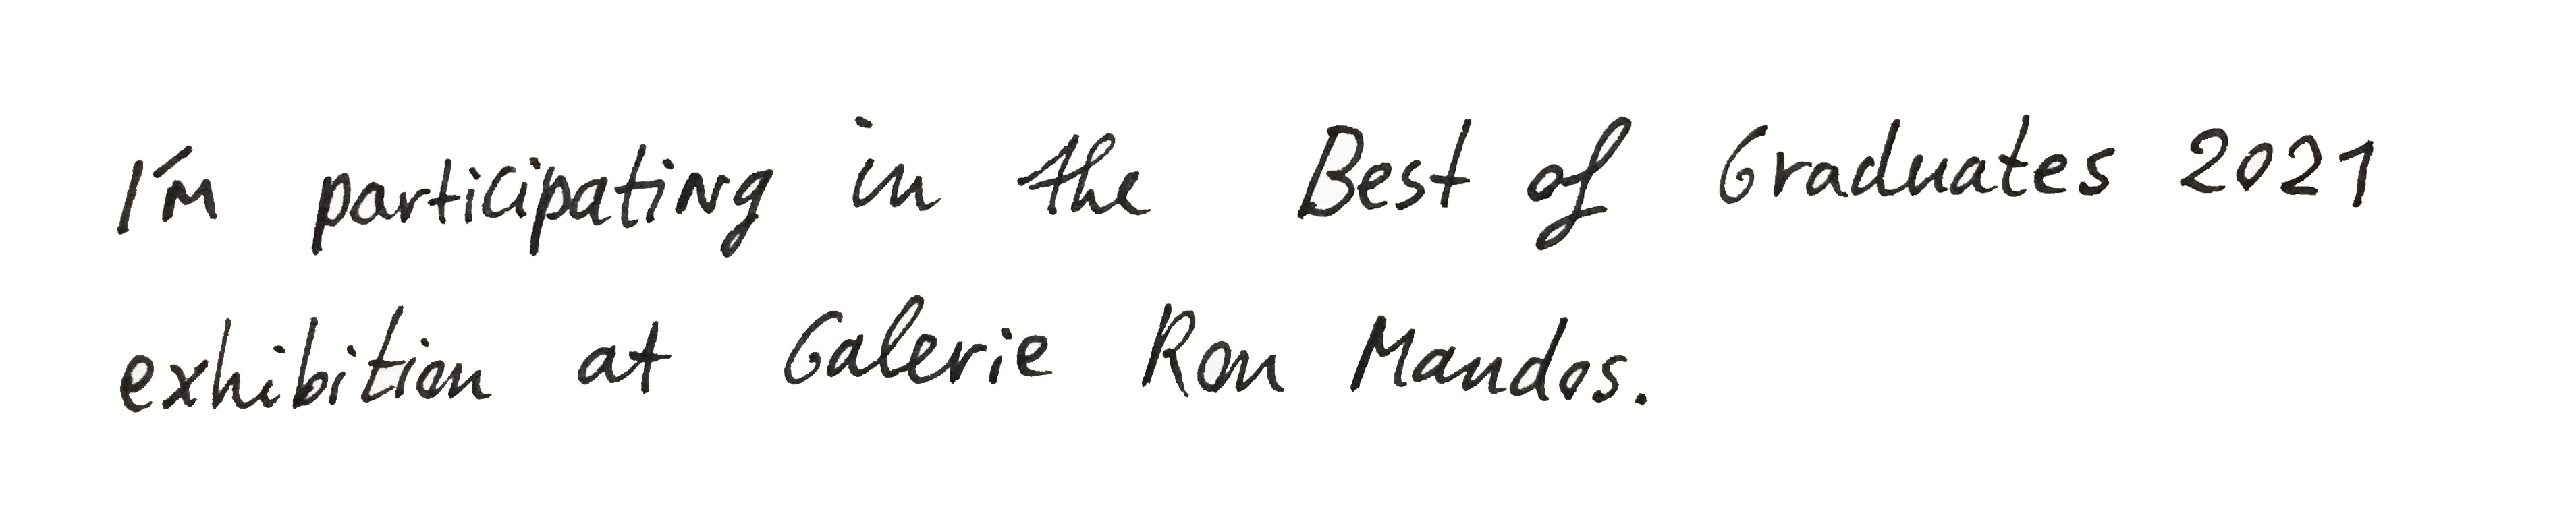 I'm participating in the Best of Graduates 2021
exhibition at Galerie Ron Mandos.